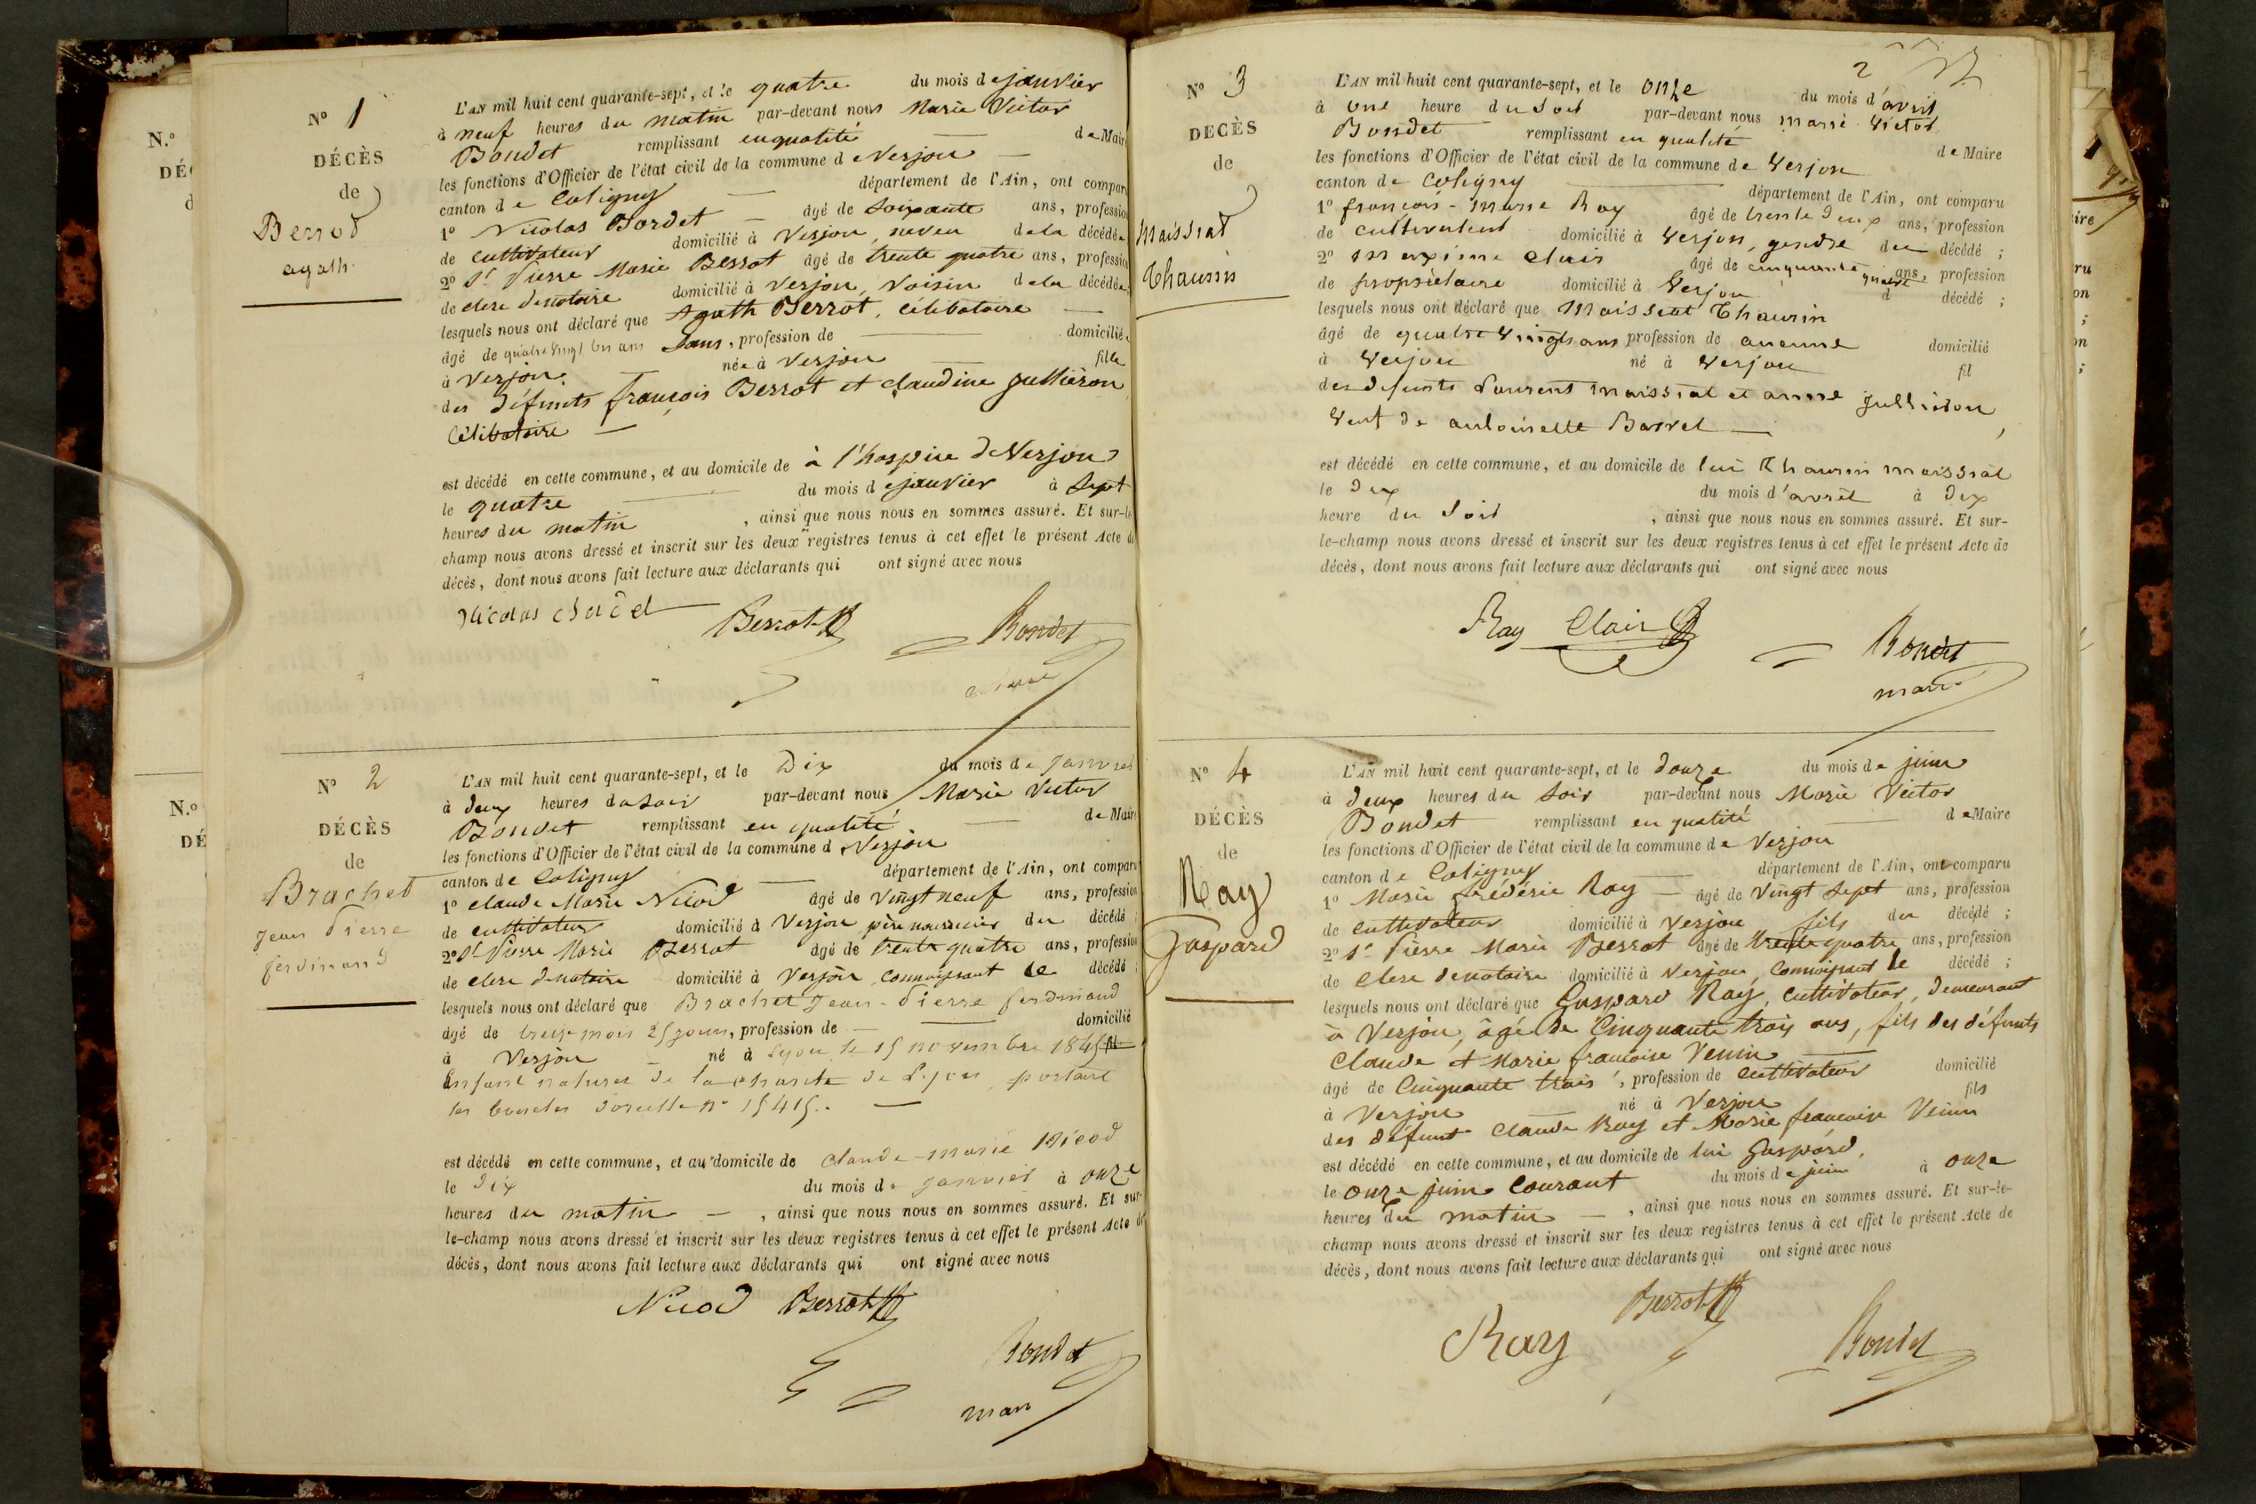 N.º
DÉ
N.º
DÉ
Nº 1
DÉCÈS
de
Berrod
agath
L'AN mil huit cent quarante-sept, et le quatre du mois de janvier
à neuf heures du matin par-devant nous Marie Victor
Bondet remplissant en qualité de Maire
les fonctions d'Officier de l'état civil de la commune de Verjon
canton de Coligny département de l'Ain, ont comparu
1º Nicolas Bordet âgé de soixante ans, profession
de cultivateur domicilié à Verjon, neveu de la décédée
2º St Pierre Marie Berrot âgé de trente quatre ans, profession
de clerc de notaire domicilié à Verjon, voisin de la décédée
lesquels nous ont déclaré que Agath Berrot, célibataire
âgé de quatre vingt un ans sans, profession de domiciliée
à Verjon née à Verjon fille
des défunts françois Berrot et claudine jullièron
Célibataire
est décédé en cette commune, et au domicile de à l'hospice de Verjon
le quatre du mois de janvier à sept
heures du matin, ainsi que nous nous en sommes assuré. Et sur-le
champ nous avons dressé et inscrit sur les deux registres tenus à cet effet le présent Acte de
décès, dont nous avons fait lecture aux déclarants qui ont signé avec nous
Nicolas Berrot Bondet
maire
Nº 2
DÉCÈS
de
Brachet
jean Pierre
ferdinand
L'AN mil huit cent quarante-sept, et le Dix du mois de janvier
à deux heures du soir par-devant nous Marie Victor
Bondet remplissant en qualité de Maire
les fonctions d'Officier de l'état civil de la commune d Verjon
canton de Coligny département de l'Ain, ont comparu
1º claude Marie Nicod âgé de vingt neuf ans, profession
de cultivateur domicilié à Verjon père nourricier du décédé
2º St Pierre Marie Berrot âgé de trente quatre ans, profession
de clerc de notaire domicilié à Verjon, connaissant le décédé
lesquels nous ont déclaré que Brachet jean-Pierre ferdinand
âgé de treize mois 25 jours, profession de domicilié
à Verjon né à Lyon le 15 novembre 1845 fil
Enfant naturel de la charité de Lyon, portant
les boucles doreille nº 15415.
est décédé en cette commune, et au domicile de claude-marie Nicod
le dix du mois de janvier à onze
heures du matin, ainsi que nous nous en sommes assuré. Et sur-
le-champ nous avons dressé et inscrit sur les deux registres tenus à cet effet le présent Acte de
décès, dont nous avons fait lecture aux déclarants qui ont signé avec nous
Nicod Berrot
Bondet
mair
2
Nº 3
DECÈS
de
Maissiat
Thaurin
L'AN mil huit cent quarante-sept, et le onze du mois d'avril
à une heure du soir par-devant nous marie Victor
Bondet remplissant en qualité de Maire
les fonctions d'Officier de l'état civil de la commune de Verjon
canton de Coligny département de l'Ain, ont comparu
1º françois-marie Ray âgé de trente deux ans, profession
de cultivateur domicilié à Verjon, gendre du décédé ;
2º maxime clair âgé de cinquante quatre ans, profession
de propriétaire domicilié à Verjon d décédé ;
lesquels nous ont déclaré que Maissiat Thaurin
âgé de quatre vingts ans profession de aucune domicilié
à Verjon né à Verjon fil
des defunts Laurent Maissiat et anne jullieron,
veuf de antoinette Barret
est décédé en cette commune, et au domicile de lui Thaurin maissiat
le dix du mois d'avril à dix
heure du soir, ainsi que nous nous en sommes assuré. Et sur-
le-champ nous avons dressé et inscrit sur les deux registres tenus à cet effet le présent Acte de
décès, dont nous avons fait lecture aux déclarants qui ont signé avec nous
Ray Clair Bondet
maire
Nº 4
DÉCÈS
de
Ray
Gaspard
L'AN mil huit cent quarante-sept, et le douze du mois de juin
à deux heures du soir par-devant nous Marie Victor
Bondet remplissant en qualité de Maire
les fonctions d'Officier de l'état civil de la commune de Verjon
canton de Coligny département de l'Ain, ont comparu
1º Marie frédéric Ray âgé de vingt sept ans, profession
de cultivateur domicilié à Verjon fils du décédé ;
2º St Pierre Marie Berrot âgé de trente quatre ans, profession
de clerc de notaire domicilié à Verjon, connaissant le décédé ;
lesquels nous ont déclaré que Gaspard Ray, cultivateur, demeurant
à Verjon, âgé de cinquante trois ans, fils des défunts
Claude et Marie françoise Venin
âgé de Cinquante trois, profession de cultivateur domicilié
à Verjon né à Verjon fils
des défunt Claude Ray et Marie françoise Venin
est décédé en cette commune, et au domicile de lui Gaspard,
le onze juin courant du mois de juin à onze
heures du matin, ainsi que nous nous en sommes assuré. Et sur-le-
champ nous avons dressé et inscrit sur les deux registres tenus à cet effet le présent Acte de
décès, dont nous avons fait lecture aux déclarants qui ont signé avec nous
Ray Berrot Bondet